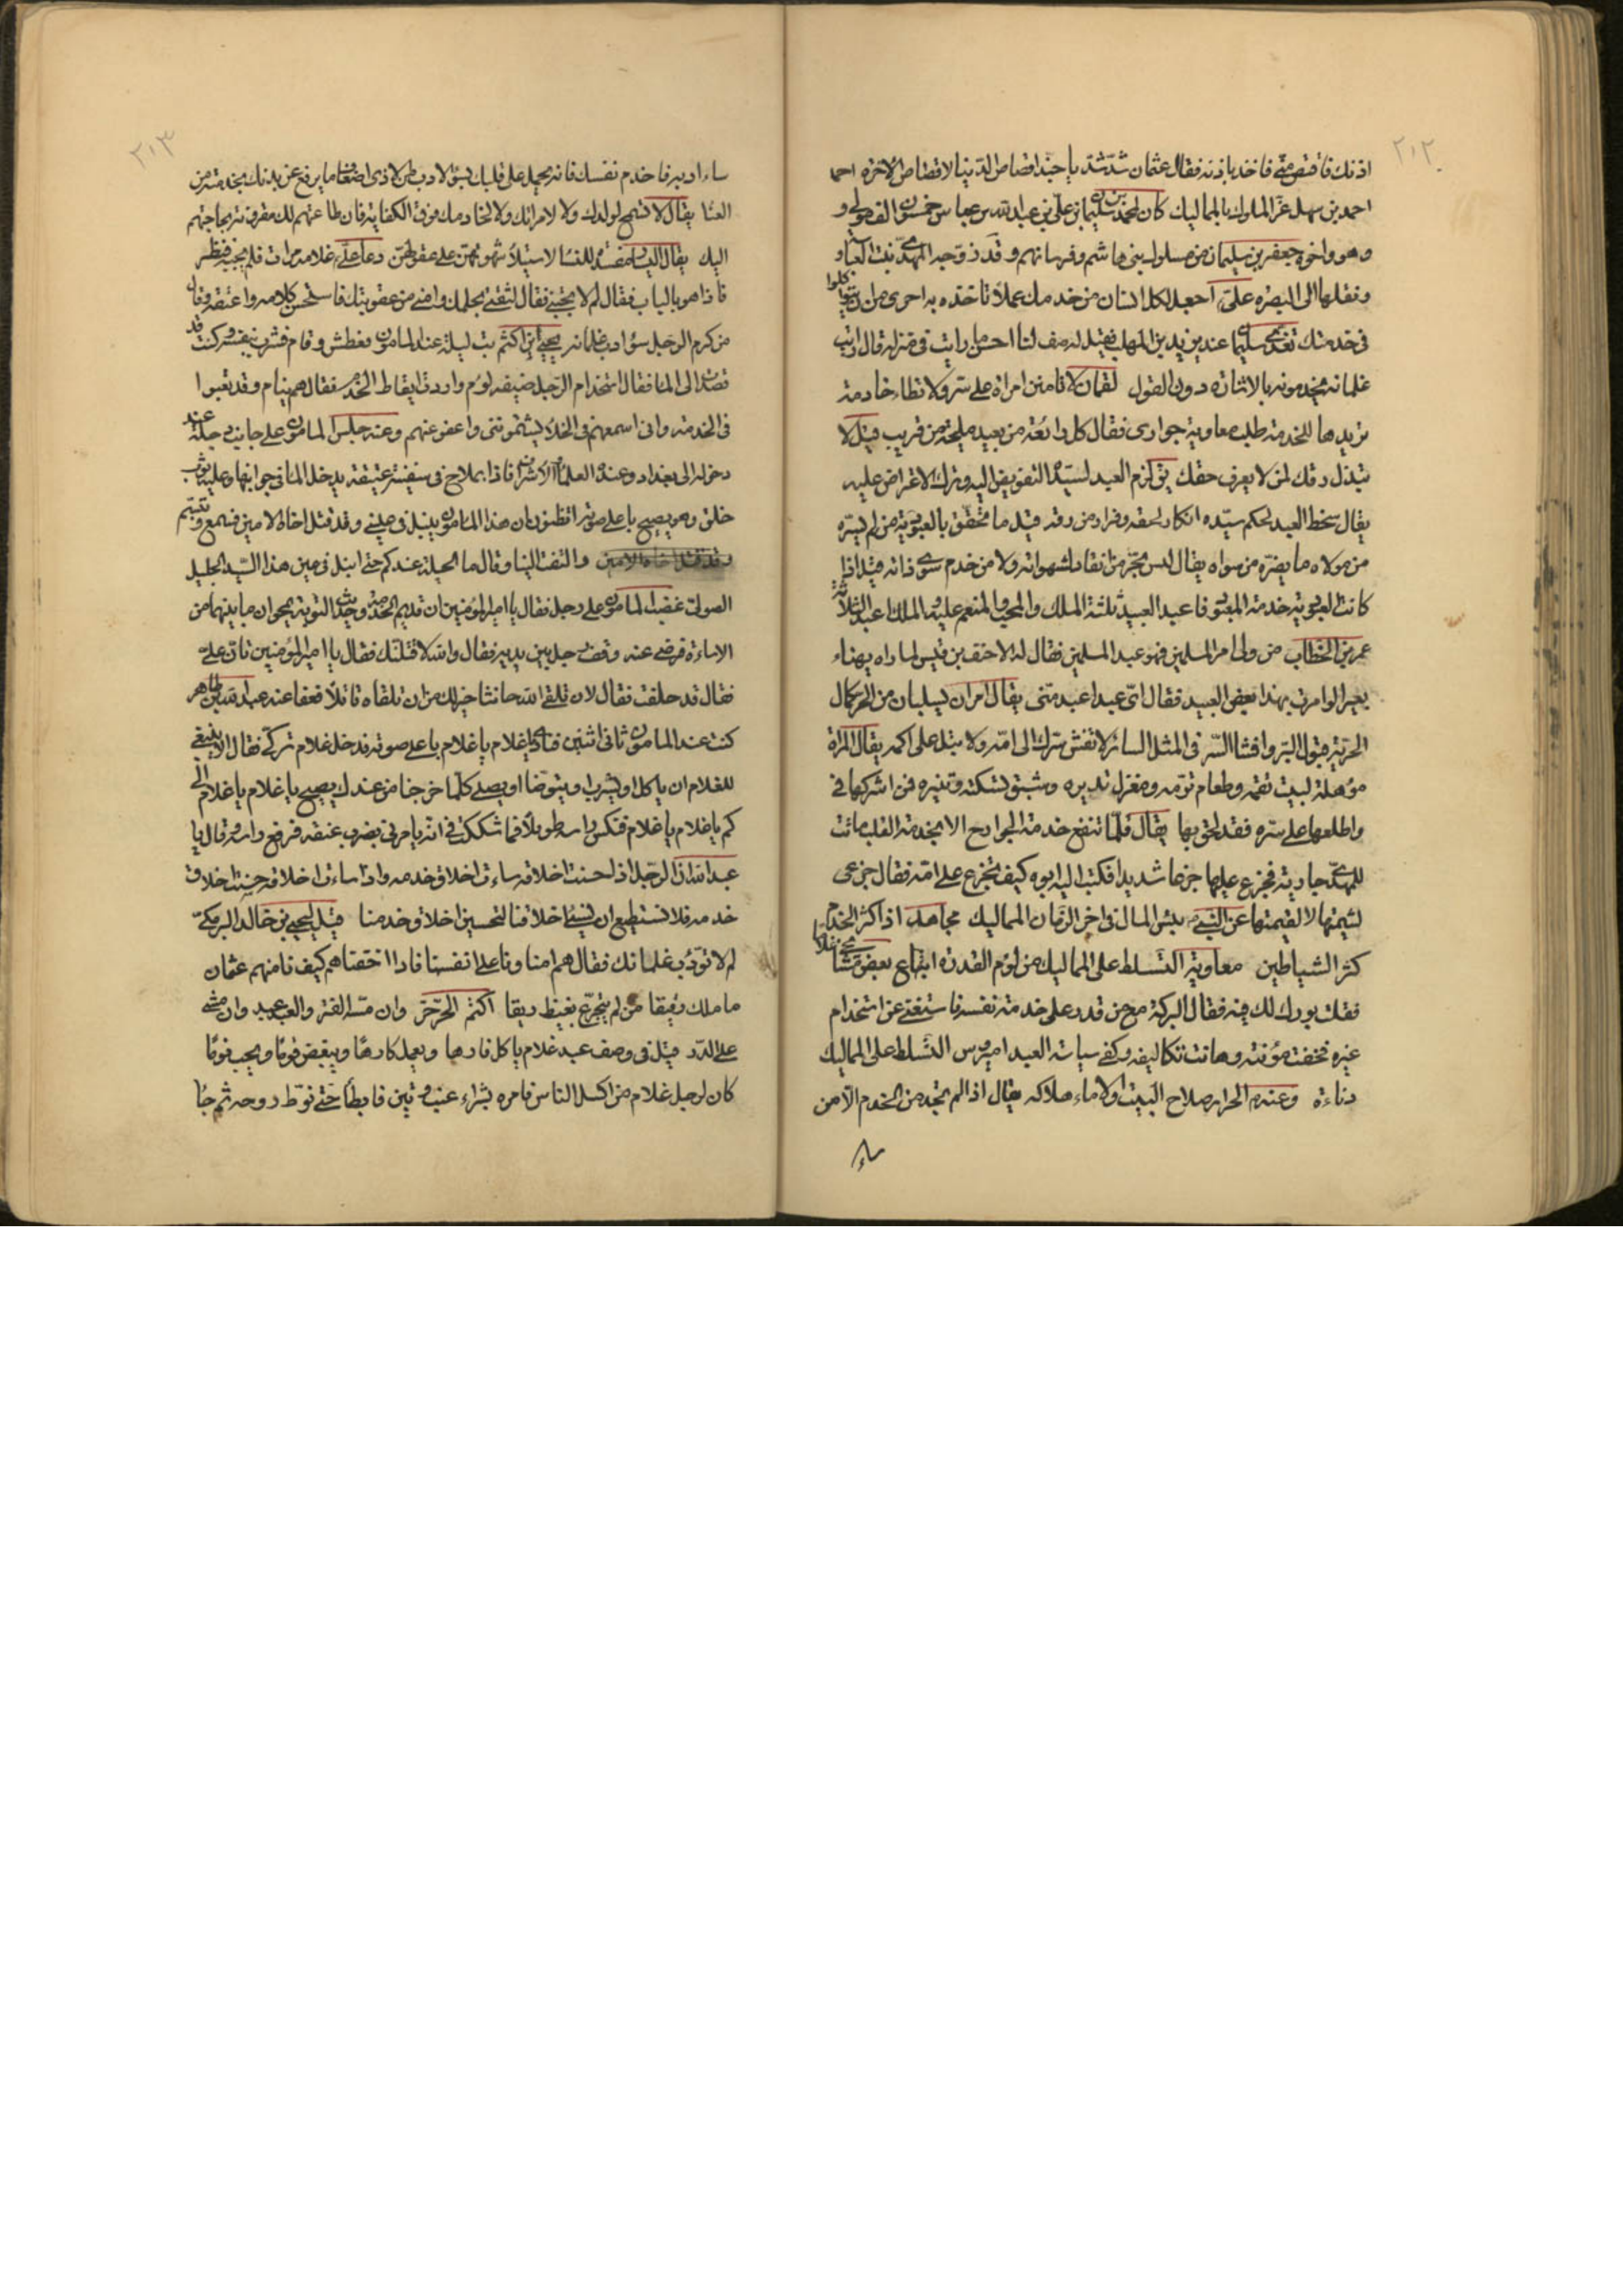 ٢١٢
اذنك فاقتص مني فاخذ باذنه فقال عثمان شد شد يا حبذا قصاص الدنيا لا قصاص الاخرة
احمد بن سهل عز الملوك بالمماليك كان لمحمد بن سليمان بن علي بن عبد الله بن عباس خمسون الف مولى و
وهو واخوه جعفر بن سليمان من ملوك بني هاشم وفرسانهم وقد زوجه المهدي بنت العباسة
ونقلها الى البصره علي اجعل لكل انسان من خدمك عملا تاخذه به احرى من ان يتواكلوا
في خدمتك تغدى سليمان عند يزيد بن المهلب فقيل له صف لنا احسن ما رايت في منزله قال رايت
غلمانه يخدمونه بالاشارة دون القول لقمان لا تامنن امراة على سر ولا تطا خادمة
تريدها للخدمة طلب معاوية جوارى فقال كل رائعة من بعيد مليحة من قريب قيل لا
تبذل رقك لمن لا يعرف حقك يق لزم العبد لسيده التفويض اليه وترك الاعتراض عليه
يقال سخط العبد لحكم سيده انكار لحقه وفرار من رقه قيل ما تحقق بالعبودية من لم يسره
من مولاه ما يضره من سواه يقال ليس بحر من انقاد لشهواته ولا من خدم سوى ذاته قيل اذا
كانت العبودية خدمة المعبود فاعبد العبيد ثلثة الملك والمحب والمنعم عليه الملك عبد
عمر بن الخطاب من ولى امر المسلمين فهو عبد المسلمين فقال له الاحنف بن قيس لما راه يهناء
بعيرا لو امرت بهذا بعض العبيد فقال اي عبد اعبد مني يقال امران يسلبان من الحر كمال
الحرية قبول البر وافشا السر في المثل السائر لا تفش سرك الى امة ولا تبل على اكمه يقال المراة
مؤهلة لبيت تقمه وطعام تؤمه ومغزل تديره فمن اشركها في
واطلعها على سره فقد لحق بها يقال قلما تنفع خدمة الجوارح الا بخدمة القلب ماتت
للمهدي جارية فجزع عليها جزعا شديدا فكتب اليه ابوه كيف تجزع على امة فقال جزعى
لشيمتها لا لقيمتها عن النبي بئس المال في اخر الزمان المماليك مجاهد اذا كثر الخدم
كثر الشياطين معاوية التسلط على المماليك من لؤم القدرة ابتاع بعض مشايخ غلاما
فقلت بورك لك فيه فقال البركة مع من قدر على خدمة نفسه فاستغنى عن استخدام
غيره فخفت مؤنته وهانت تكاليفه وكفى سياسة العبد التسلط على المماليك
دناءة وعنه الحراير صلاح البيت والاماء هلاكه يقال اذا لم تجد من الخدم الا من
ساء
٢١٣
ساء ادبه فاخدم نفسك فانه يحمل على قلبك بسوء الادب من الاذى اضعاف ما يرفع عن بدنك بخدمته من
العنا يقال لا تسمح لولدك ولا لامراتك ولا لخادمك فوق الكفاية فان طاعتهم لك مقرونة بحاجتهم
اليك دعا علي غلامه مرات فلم يجبه فنظر
فاذا هو بالباب فقال لم لا تجبني فقال لثقتي بحلمك وامني من عقوبتك فاستحسن كلامه واعتقه وقال
من كرم الرجل سؤ ادب غلمانه يحيى بن اكثم بت ليلة عند المامون فعطش وقام فشرب بنفسه وكنت قد
فقال استخدام الرجل ضيفه لؤم واردت ايقاظ الخدم فقال هم نيام وقد تعبوا
في الخدمة واني اسمعهم في الخلاء يشتمونني واعفو عنهم وعنه جلس المامون على جانب دجلة عند
دخوله الى بغداد وعنده العلماء والاشراف فاذا بملاح في سفينة عتيقة يدخل الما في جوانبها وعليه ثوب
خلق وهو يصيح باعلى صوته اتظنون ان هذا المامون ينبل في عيني وقد قتل اخاه الامين فسمع وتبسم
والتفت الينا وقال ما الحيلة عندكم حتى انبل في عين هذا السيد الجليل
الصولى غضب المامون على رجل فقال يا امير المؤمنين ان قديم الخدمة وحديث التوبة يمحوان ما بينهما من
الاساءة فرضى عنه وقف رجل بين يديه فقال والله لاقتلنك فقال يا امير المؤمنين تان علي
فقال قد حلفت فقال لان تلقى الله حانثا خير لك من ان تلقاه قاتلا فعفا عنه عبد الله بن طاهر
كنت عند المامون ثاني اثنين فنادى يا غلام يا غلام باعلى صوته فدخل غلام تركي فقال الا ينبغي
للغلام ان ياكل او يشرب او يتوضا او يصلي كلما خرجنا من عندك يصيح يا غلام يا غلام الى
كم يا غلام يا غلام فنكس راسه طويلا فما شككت في انه يامرني بضرب عنقه فرفع راسه وقال يا
عبد الله ان الرجل اذا حسنت اخلاقه ساءت اخلاق خدمه واذا ساءت اخلاقه حسنت اخلاق
خدمه فلا نستطيع ان نسئ اخلاقنا لتحسين اخلاق خدمنا قيل ليحيى بن خالد البرمكي
لم لا تودب غلمانك فقال هم امناؤنا على انفسنا فاذا اخفناهم كيف نامنهم عثمان
ما ملك رفيقا من لم يتجرع بغيظ ريقا اكثم الحر حر وان مسه الضر والعبد عبد وان مشى
على الدر قيل في وصف عبد غلام ياكل فارها ويعمل كارها ويبغض قوما ويحب نوما
كان لرجل غلام من اكسل الناس فامره بشراء عنب وتين فابطا حتى نوط روحه ثم جا